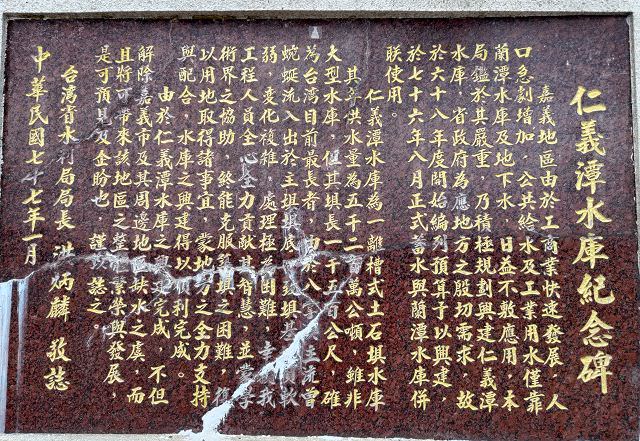 仁義潭水庫紀念碑
嘉義地區由於工商業快速發展,人
口急劇增加,公共給水及工業用水僅靠
蘭潭水庫及地下水 日益不敷應用,本
局鑑於其嚴重 乃積極規劃興建仁義潭
水庫 省政府為應地方之殷切需求,故
於六十八年度開始編列預算予以興建,
於七十六年八月正式蓄水與蘭潭水庫併
聯使用。
仁義潭水庫為一離槽式土石埧水庫
其年供水量為五千二百萬公噸,雖非
大型水庫,但其埧長一千五百公尺,確
為台湾目前最長者,由於八掌溪主流曾
蜿蜒流入出於主埧埧底,致埧基
弱,變化複雜,處理極為困難,幸我
工程人員全心全力貢獻其智慧,並學
術界之協助,終能克服築埧之困難,復
以用地取得諸事宜,蒙地方之全力支持
與配合,水庫之興建得以順利完成。
由於仁義潭水庫之興建完成,不但
解除嘉義市及其周邊地區缺水之虞,而
且將可帶來該地區之整體繁榮與發展,
是可預見及企盼也,謹以誌之。
台湾省水利局局長 洪炳麟 敬誌
中華民國七十七年一月